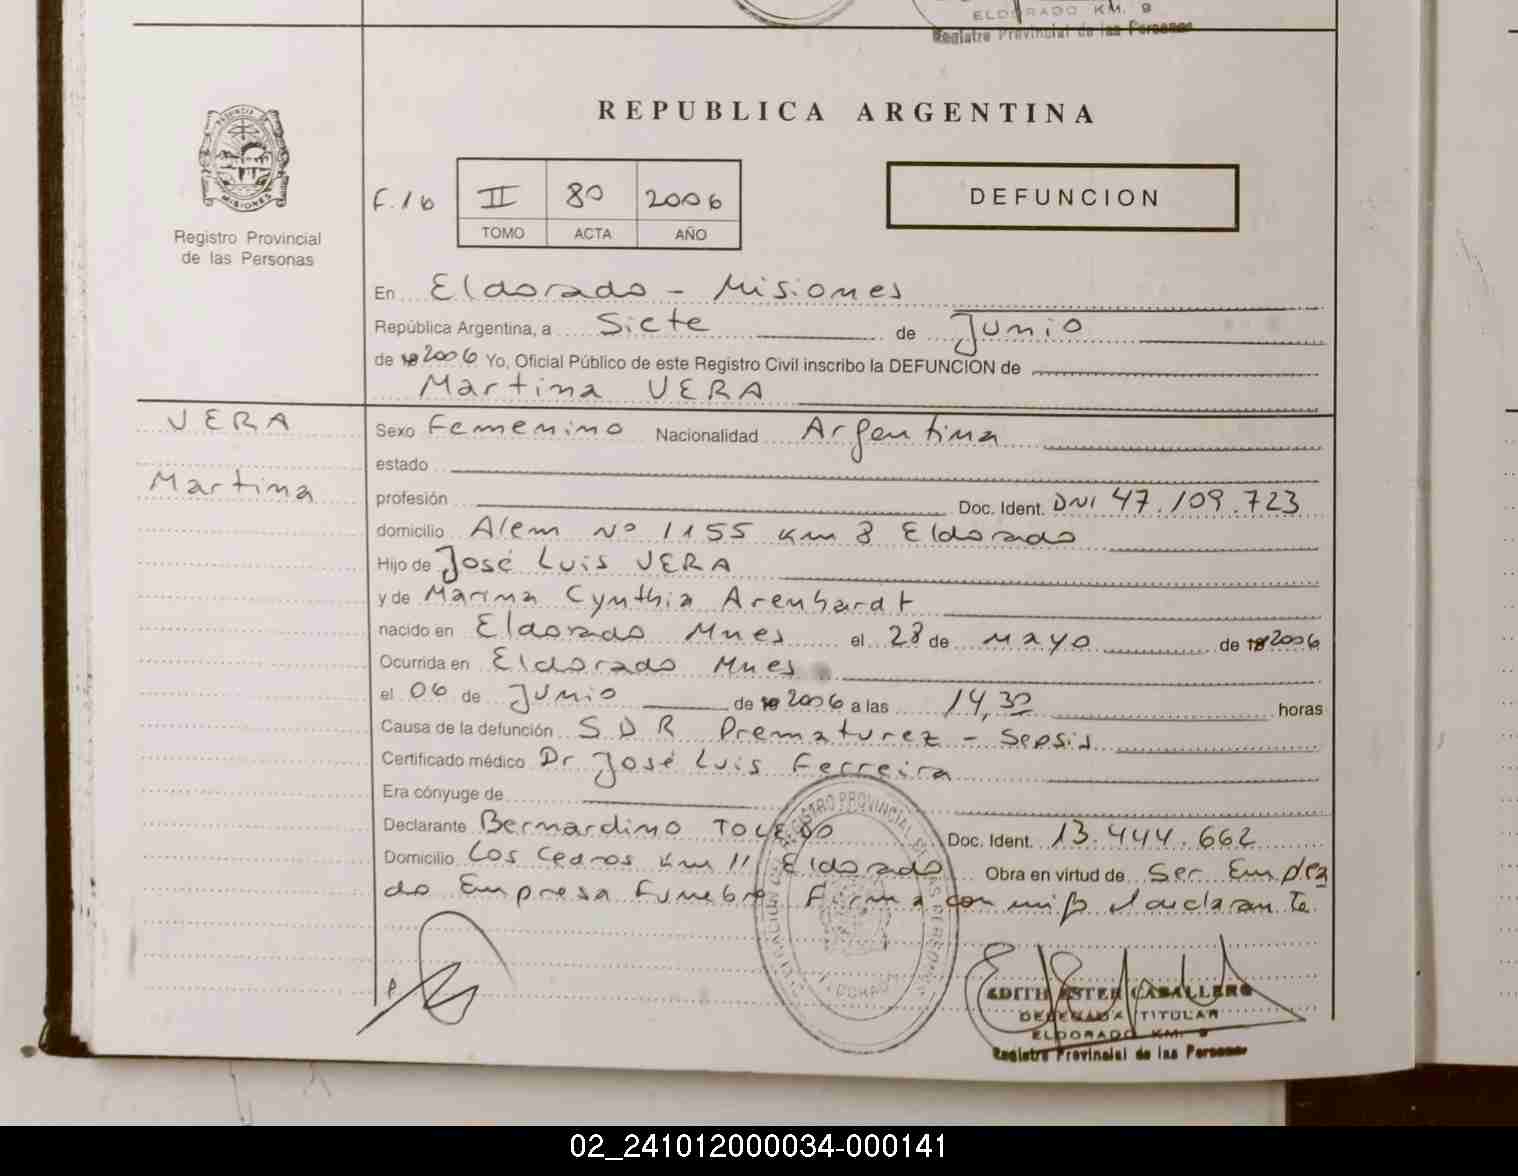 ELDORADO KM. 9
Registro Provincial de las Personas
REPUBLICA ARGENTINA
PROVINCIA DE
MISIONES
Registro Provincial
de las Personas
F. 16
II 80 2006
TOMO ACTA AÑO
DEFUNCION
En Eldorado - Misiones
República Argentina, a Siete de Junio
de 2006 Yo, Oficial Público de este Registro Civil inscribo la DEFUNCION de
Martina VERA
VERA
Martina
Sexo Femenino Nacionalidad Argentina
estado
profesión Doc. Ident. DNI 47.109.723
domicilio Alem Nº 1155 Km 8 Eldorado
Hijo de José Luis VERA
y de Marina Cynthia Arenhardt
nacido en Eldorado Mnes el 28 de Mayo de 2006
Ocurrida en Eldorado Mnes
el 06 de Junio de 2006 a las 14,30 horas
Causa de la defunción S D R Prematurez - Sepsis
Certificado médico Dr José Luis Ferreira
Era cónyuge de
Declarante Bernardino TOLEDO Doc. Ident. 13.444.662
Domicilio Los Cedros Km 11 Eldorado Obra en virtud de Ser Emplea
do Empresa Funebre Firma con migo el declarante.
REGISTRO PROVINCIAL DE LAS PERSONAS
ELDORADO
EDITH ESTER CABALLERO
DELEGADA TITULAR
ELDORADO KM. 9
Registro Provincial de las Personas
02_241012000034-000141